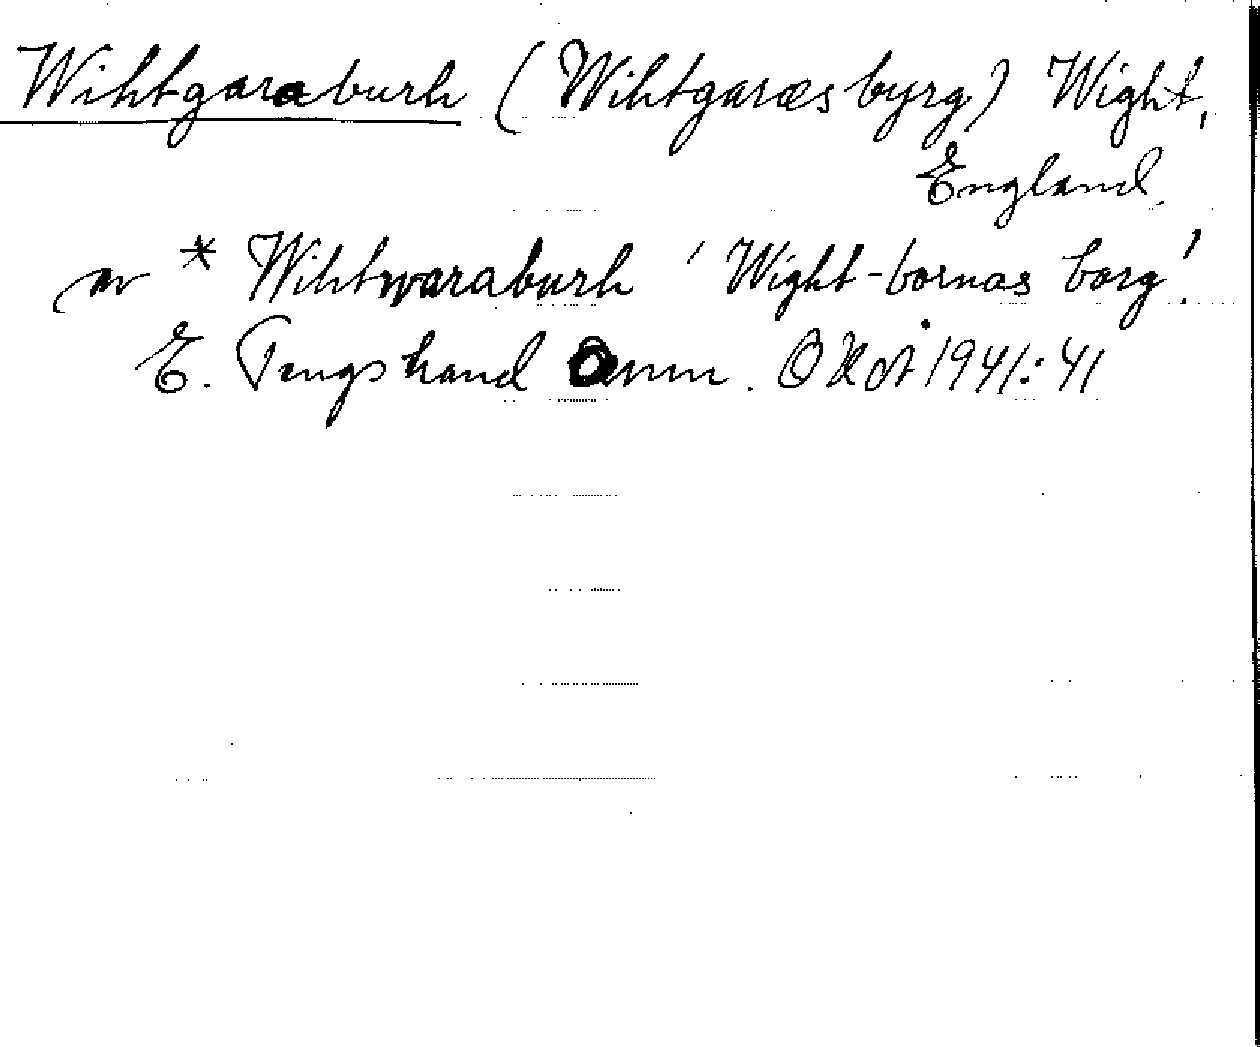 Wihtgaraburh (Wihtgaræsbyrg) Wight,
England.
av * Wihtwaraburh 'Wight-bornas borg'.
E. Tengstrand Anm. OKoT 1941:41